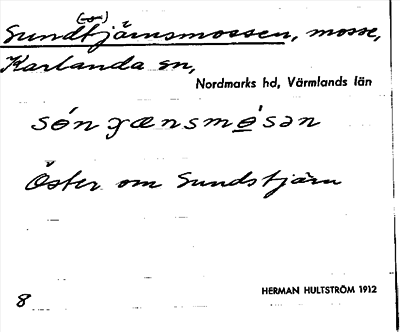 (-sn)
Sundtjärnsmossen, mosse,
Karlanda sn,
Nordmarks hd, Värmlands län
Öster om Sundstjärn
8
HERMAN HULTSTRÖM 1912